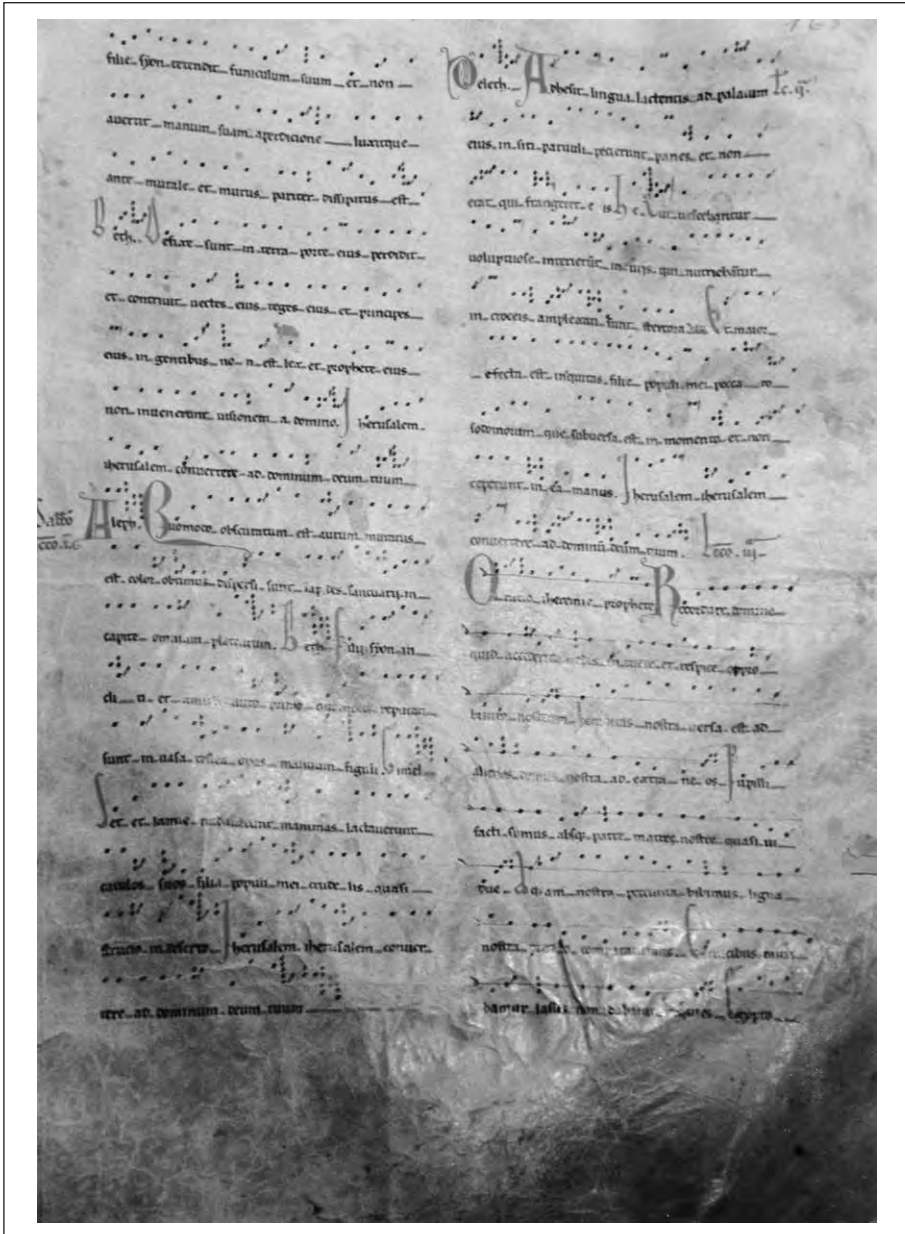 filie syon tetendit funiculum suum et non
avertit manum suam aperdicione luxitque
ante murale et murus pariter dissipatus est
Beth. Defixe sunt in terra porte eius perdidit
et contrivit vectes eius reges eius et principes
eius in gentibus no n est lex et prophete eius
non invenerunt visionem a domino. Jherusalem
iherusalem convertere ad dominum deum tuum
Aleph. Quomodo obscuratum est aurum mutatus
est color obtimus dispersi sunt lapides sanctuarii in
capite omnium platearum. Beth filii syon in
cli ti et amicti auro primo quomodo reputati
sunt in vasa testea opus manuum figuli Gimel
Set et lamie nudaverunt mammas lactaverunt
catulos suos filia populi mei crude lis quasi
strucio in deserto. Jherusalem iherusalem conver
tere ad dominum deum tuum
163
Delech. Adhesit lingua lactentis ad palatum
eius in siti parvuli pecierunt panes et non
erat qui frangeret e is he. Qui vescebantur
voluptuose interierūt in viis qui nutriebātur
in croceis amplexati sunt stercora vau Et maior
efecta est iniquitas filie populi mei pecca to
sodomorum que subversa est in momento et non
ceperunt in ea manus. Jherusalem iherusalem
convertere ad dominū deūm tuum. Leccio. iij
Oratio iheremie prophete Recordare domine
quid acciderit nobis intuere et respice oppro
brium nostrum hereditas nostra versa est ad
alienos domus nostra ad extra ne os Pupilli
facti sumus absq; patre matres nostre quasi vi
due Aquam nostram peccunia bibimus ligna
nostra precio comparavimus Cervicibus mina
bamur lassis non dabatur requies Egypto